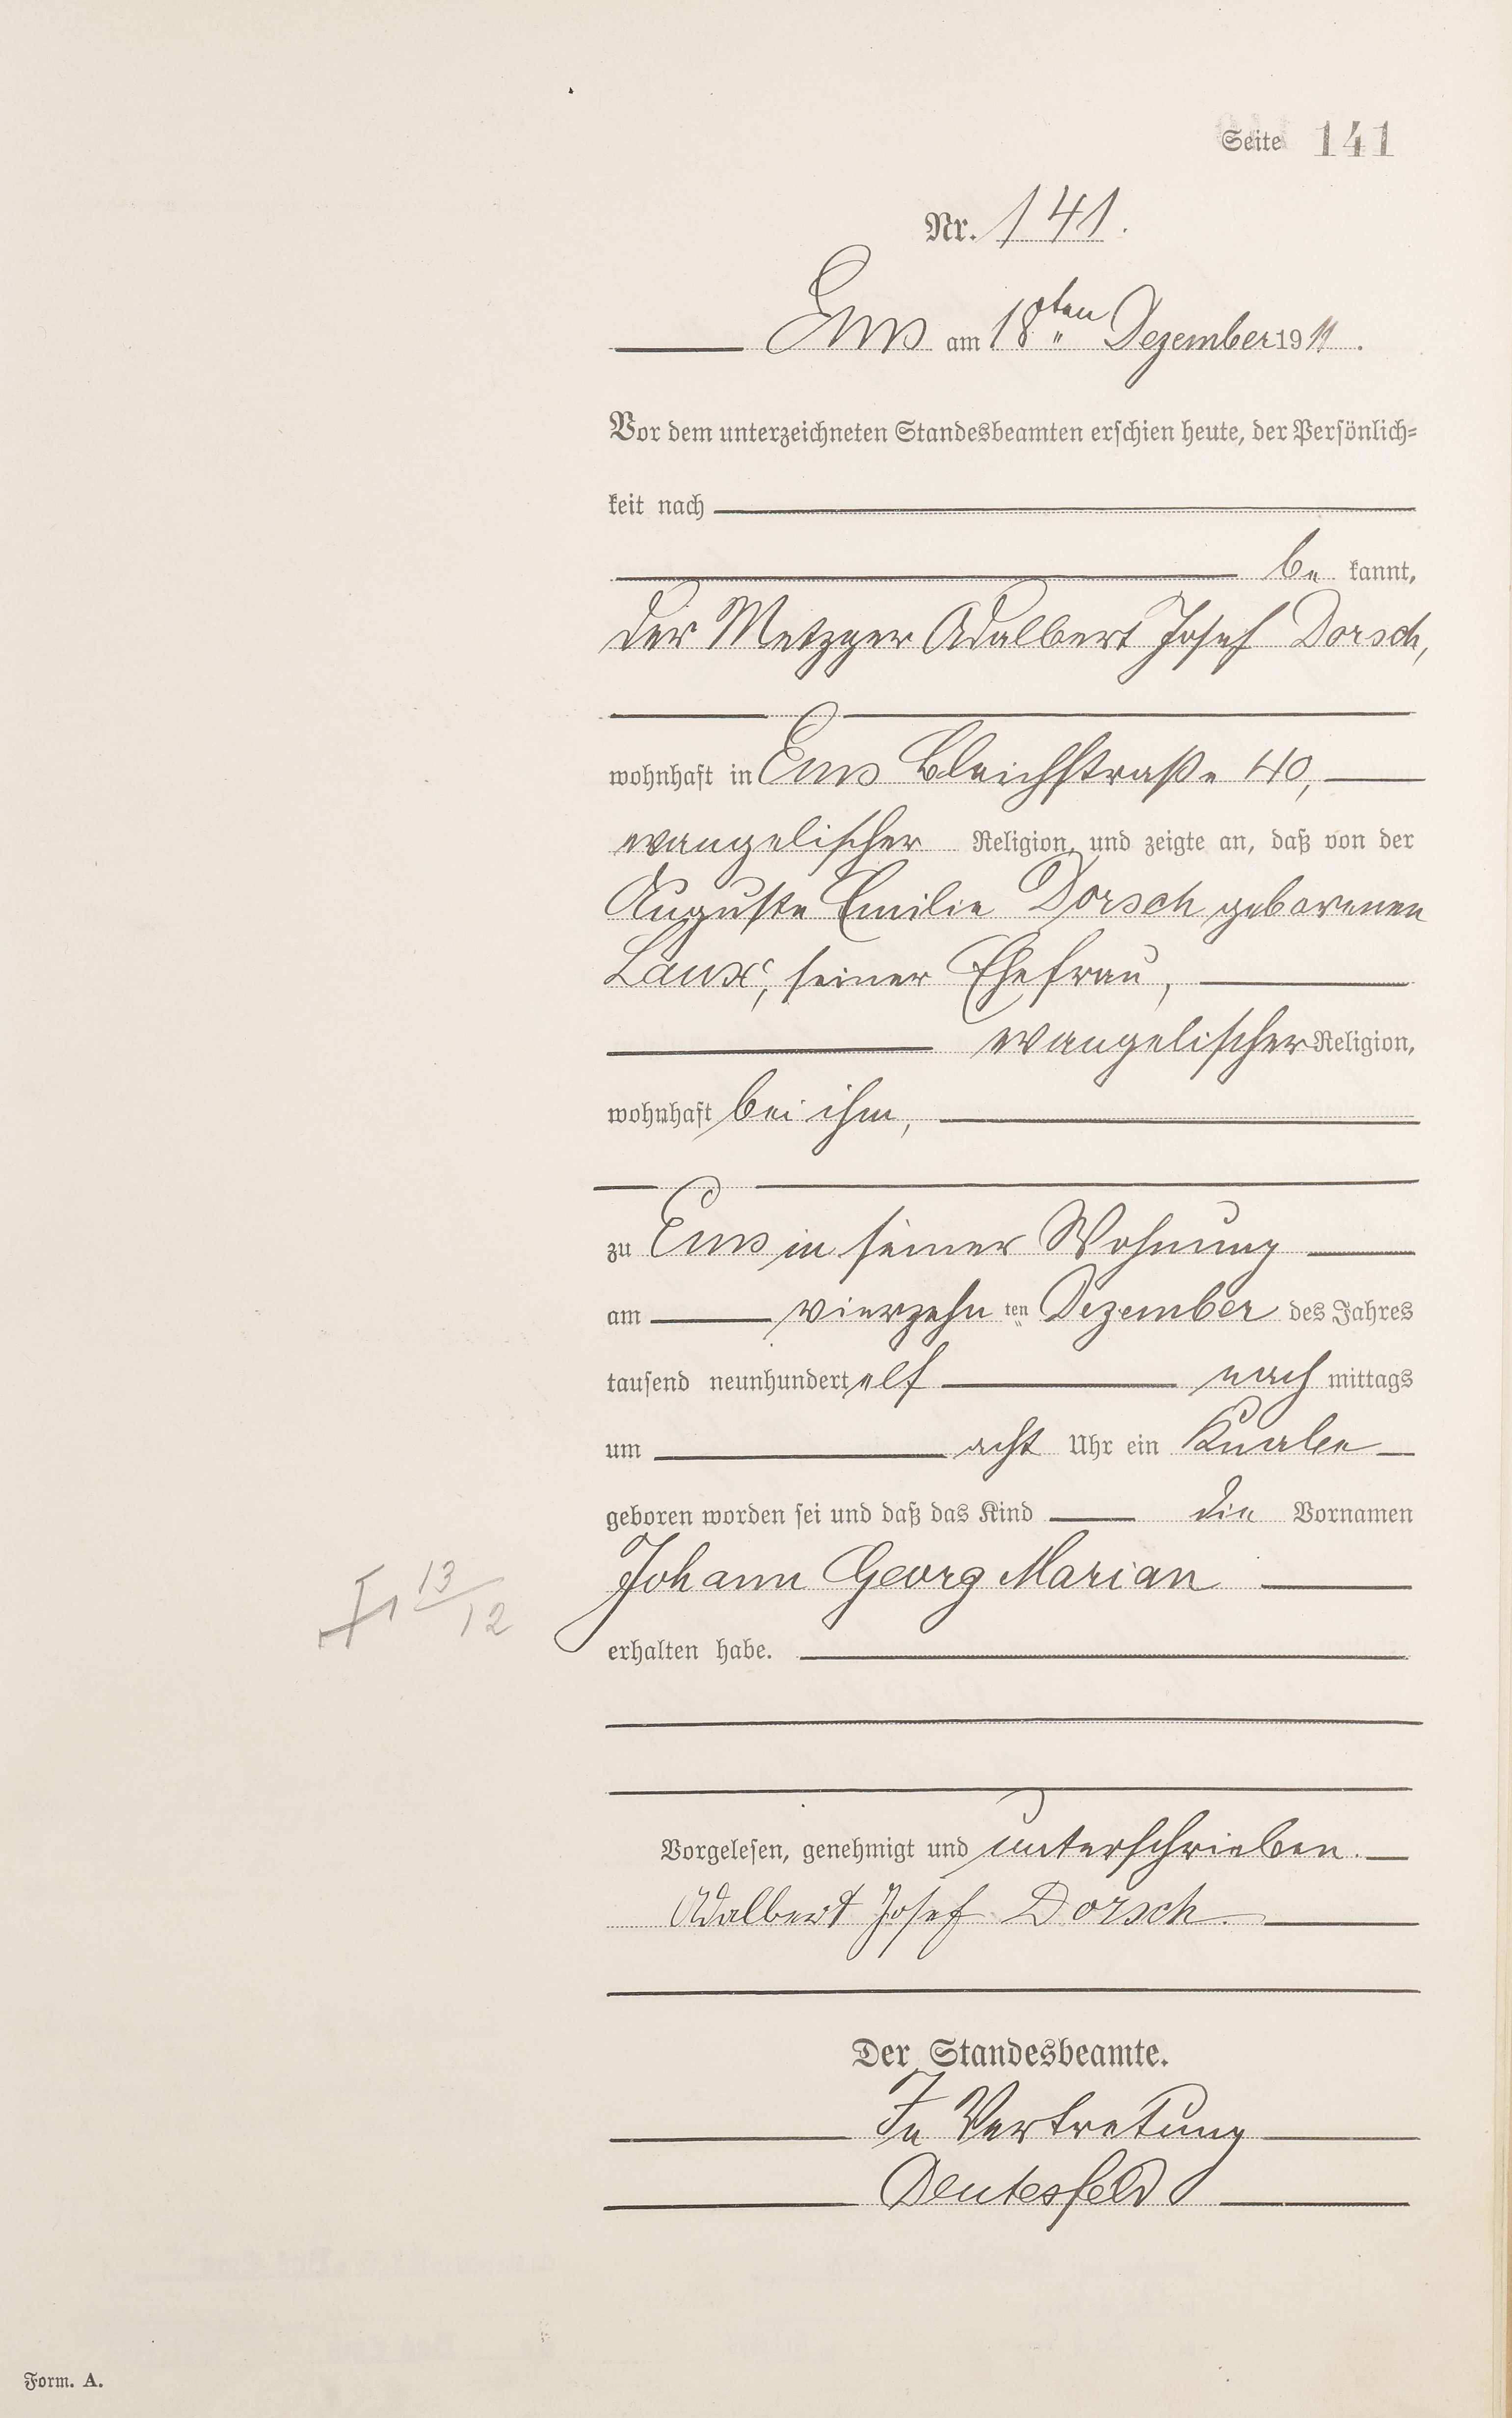 Seite 141
Nr. 141.
Ems am 18ten Dezember 1911.
Vor dem unterzeichneten Standesbeamten erschien heute, der Persönlich-
keit nach
be kannt,
der Metzger Adalbert Josef Dorsch,
wohnhaft in Ems Bleichstraße 40,
evangelischer Religion, und zeigte an, daß von der
Auguste Emilie Dorsch geborenen
Laux, seiner Ehefrau,
evangelischer Religion,
wohnhaft bei ihm,
zu Ems in seiner Wohnung
am vierzehn ten Dezember des Jahres
tausend neunhundert elf nach mittags
um acht Uhr ein Knabe
geboren worden sei und daß das Kind die Vornamen
Johann Georg Marian
13/12
erhalten habe.
Vorgelesen, genehmigt und unterschrieben.
Adalbert Josef Dorsch.
Der Standesbeamte.
In Vertretung
Deutesfeld
Form. A.